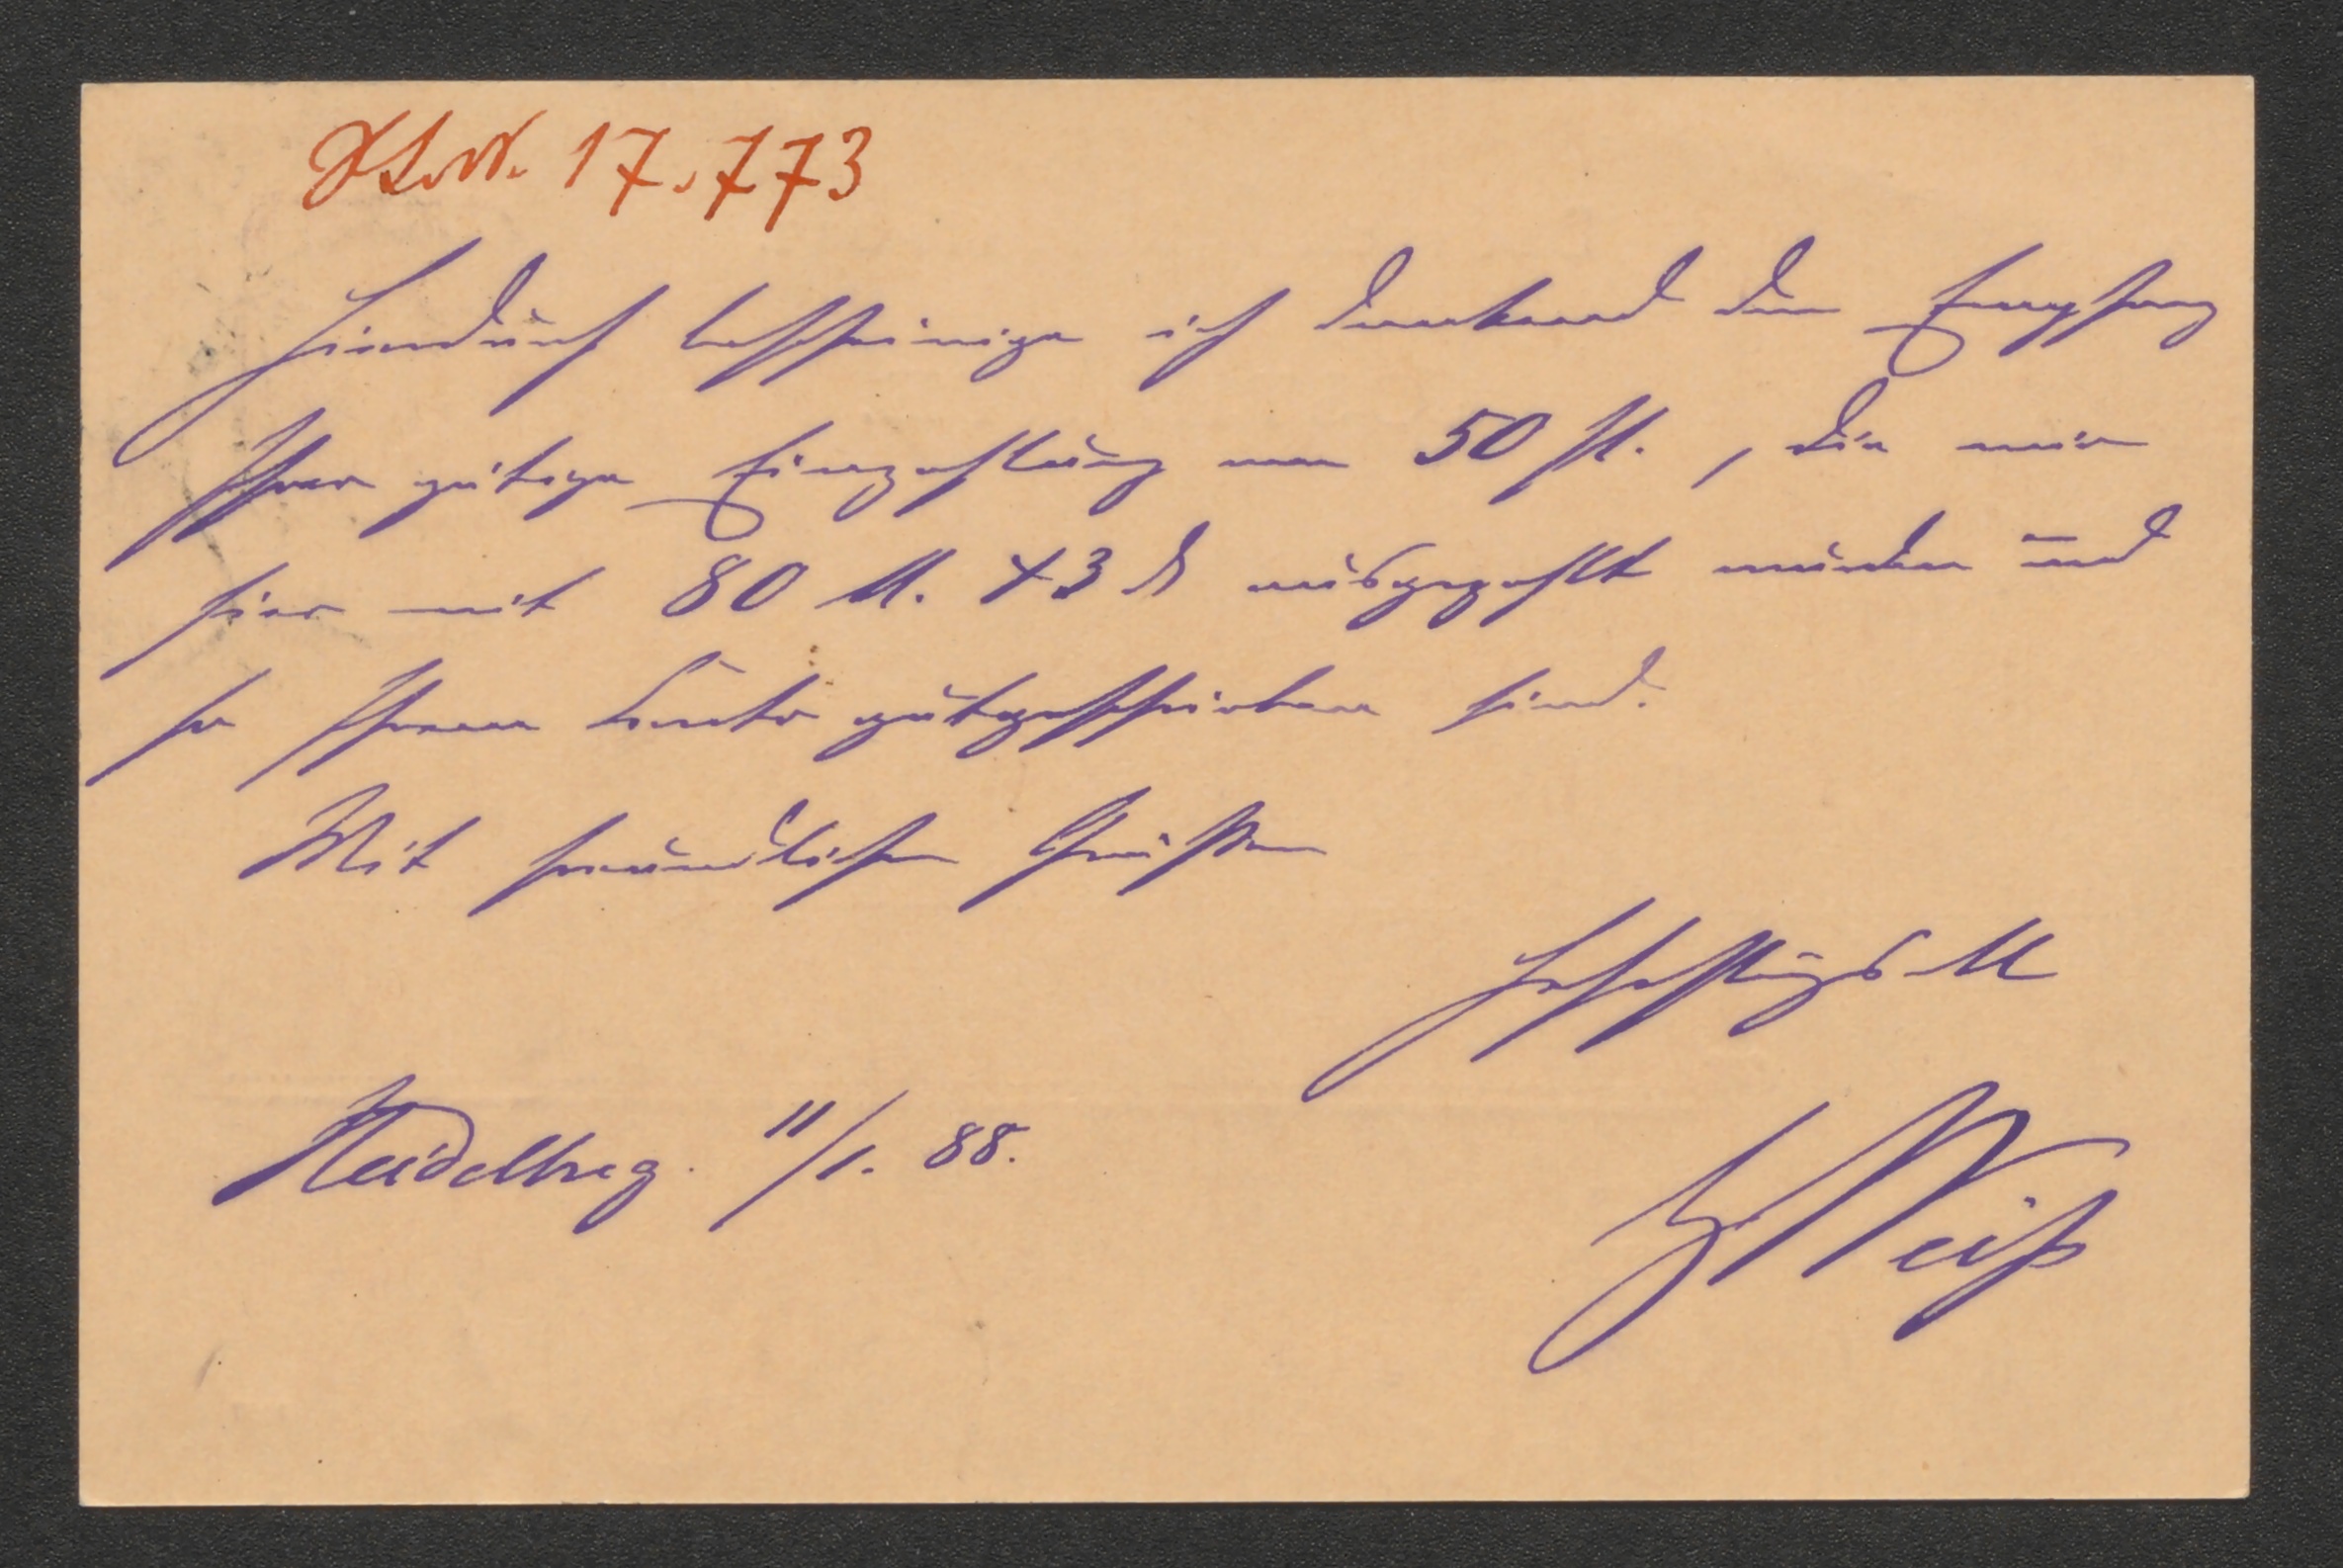 17.773
Hierdurch bescheinige ich dankend den Empfang
Ihrer gütigen Einzahlung von 50 fl., die mir
hier mit 80 M. 43 ₰ ausgezahlt wurden und
so Ihrem Conto gutgeschrieben sind.
Mit freundlichen Grüßen
Hochachtungsvoll
Heidelberg. 11/1. 88.